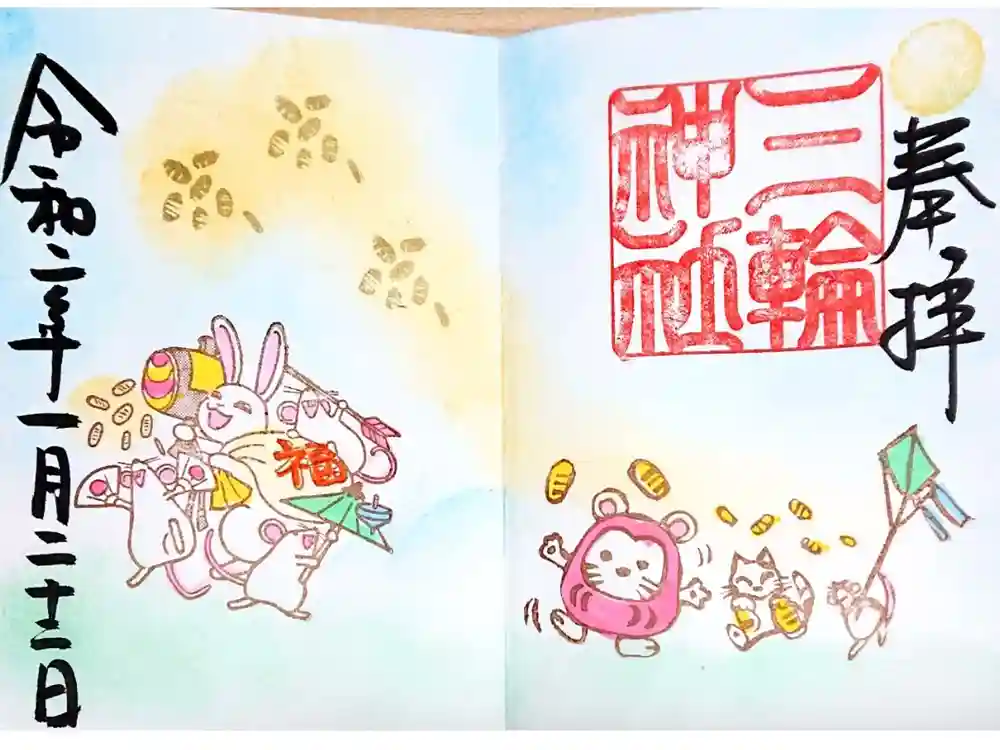 奉拝
三輪
神社
福
令和二年一月二十二日